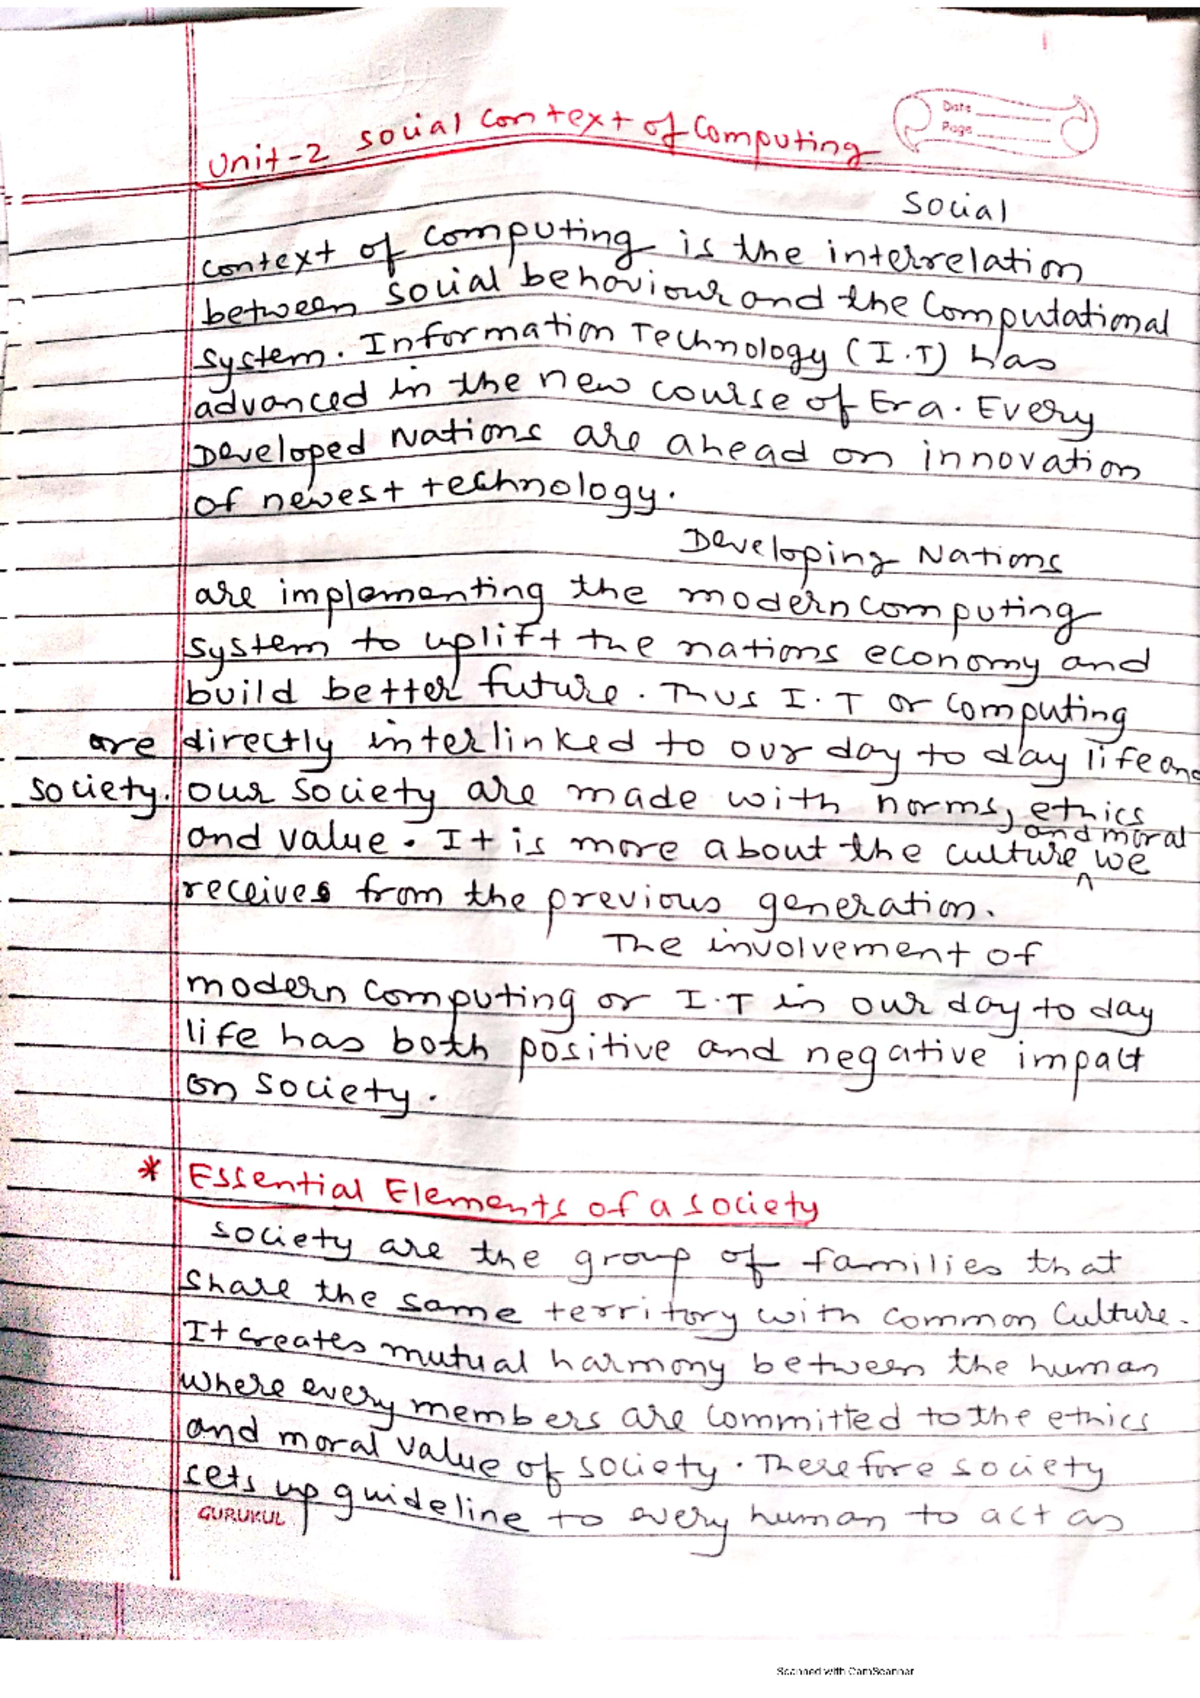 1
Date
Page
Unit-2 Social Context of Computing
Social
context of computing is the interrelation
between social behaviour and the Computational
system. Information Technology (I.T) has
advanced in the new course of Era. Every
Developed Nations are ahead on innovation
of newest technology.
Developing Nations
are implementing the modern computing
system to uplift the nations economy and
build better future. Thus I.T or computing
are directly interlinked to our day to day life and
society. Our society are made with norms, ethics
and value. It is more about the culture and moral we
receives from the previous generation.
The involvement of
modern computing or I.T in our day to day
life has both positive and negative impact
on society.
* Essential Elements of a society
Society are the group of families that
share the same territory with common Culture.
It creates mutual harmony between the human
where every members are committed to the ethics
and moral value of society. Therefore society
sets up guideline to every human to act as
GURUKUL
Scanned with CamScanner